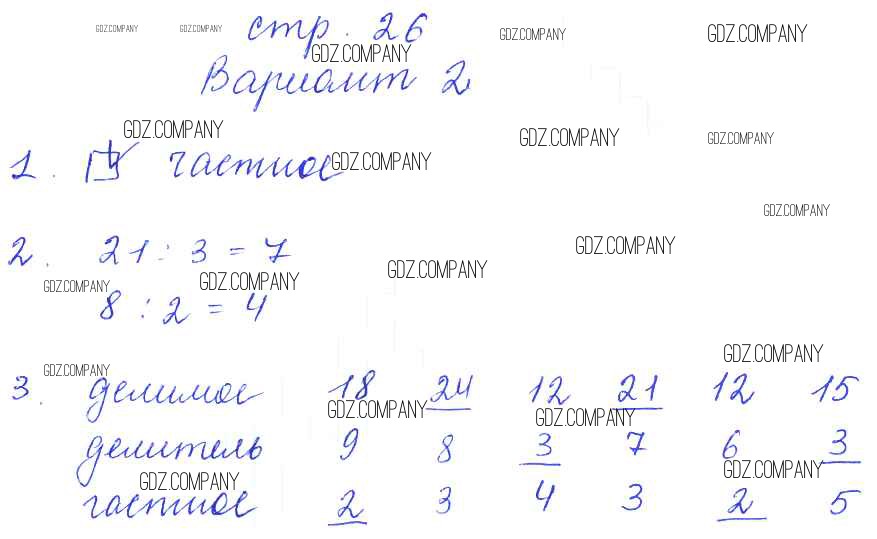 GDZ.COMPANY GDZ.COMPANY стр. 26 GDZ.COMPANY GDZ.COMPANY
GDZ.COMPANY
Вариант 2
GDZ.COMPANY GDZ.COMPANY GDZ.COMPANY
1. ☑ частное GDZ.COMPANY
GDZ.COMPANY
2. 21 : 3 = 7 GDZ.COMPANY
GDZ.COMPANY GDZ.COMPANY GDZ.COMPANY
8 : 2 = 4
GDZ.COMPANY GDZ.COMPANY
3. делимое 18 24 12 21 12 15
GDZ.COMPANY GDZ.COMPANY
делитель 9 8 3 7 6 3
GDZ.COMPANY GDZ.COMPANY
частное 2 3 4 3 2 5